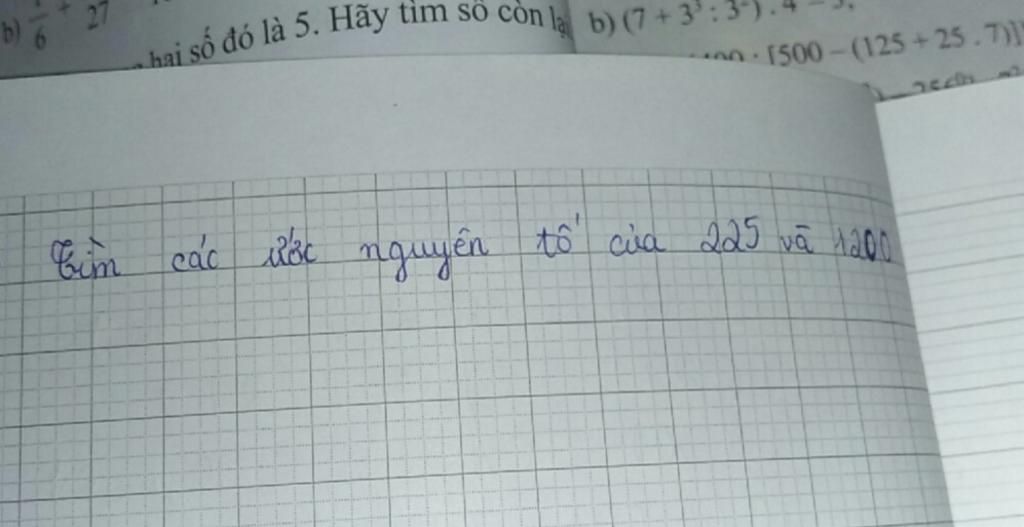 b) 1/6 + 27
hai số đó là 5. Hãy tìm số còn lại
b) (7 + 3³ : 3²) . 4 – 3.
: [500 – (125 + 25 . 7)]
Tìm các ước nguyên tố của 225 và 1200